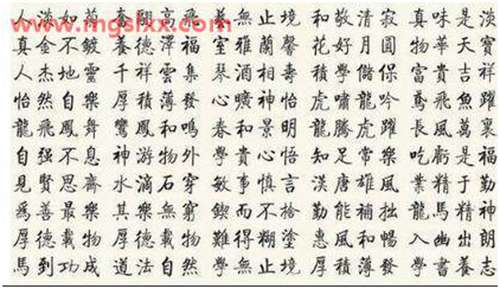 www.mgslxx.com
人淡如菊 翔高飛 學無止境 和敬清寂 真味是淡
真金不鍍 養德澤福 室雅蘭馨 花好月圓 物華天寶
人杰地靈 千祥雲集 琴酒相壽 積學儲 富貴吉祥
怡然自樂 厚積薄發 心曠神怡 虎嘯龍吟 鳶飛魚躍
龍飛鳳舞 鸞鳳和鳴 春和景明 龍騰虎躍 長風萬里
自强不息 神游物外 和貴心悟 知足常樂 吃虧是福
見賢思齊 水滴石穿 學敏事慎言 漢唐雄風 業精于勤
為善最樂 其樂無窮 鍥而不捨 勤能補拙 龍馬精神
厚德載物 厚德載物 難得糊塗 惠風和暢 入幽出朗
馬到功成 道法自然 學無止境 厚積薄發 學書養志